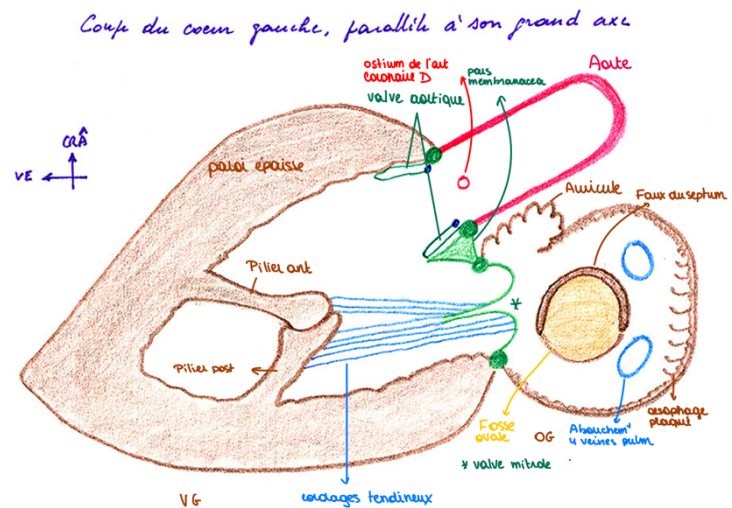 Coupe du coeur gauche, parallèle à son grand axe
ostium de l'art
coronaire D
pars
membranacea
Aorte
valve aortique
CRÂ
VE
paroi épaisse
Auricule
Faux du septum
Pilier ant
*
Pilier post
Fosse
ovale
OG
Abouchemt
4 veines pulm
oesophage
plaqué
* valve mitrale
VG
cordages tendineux